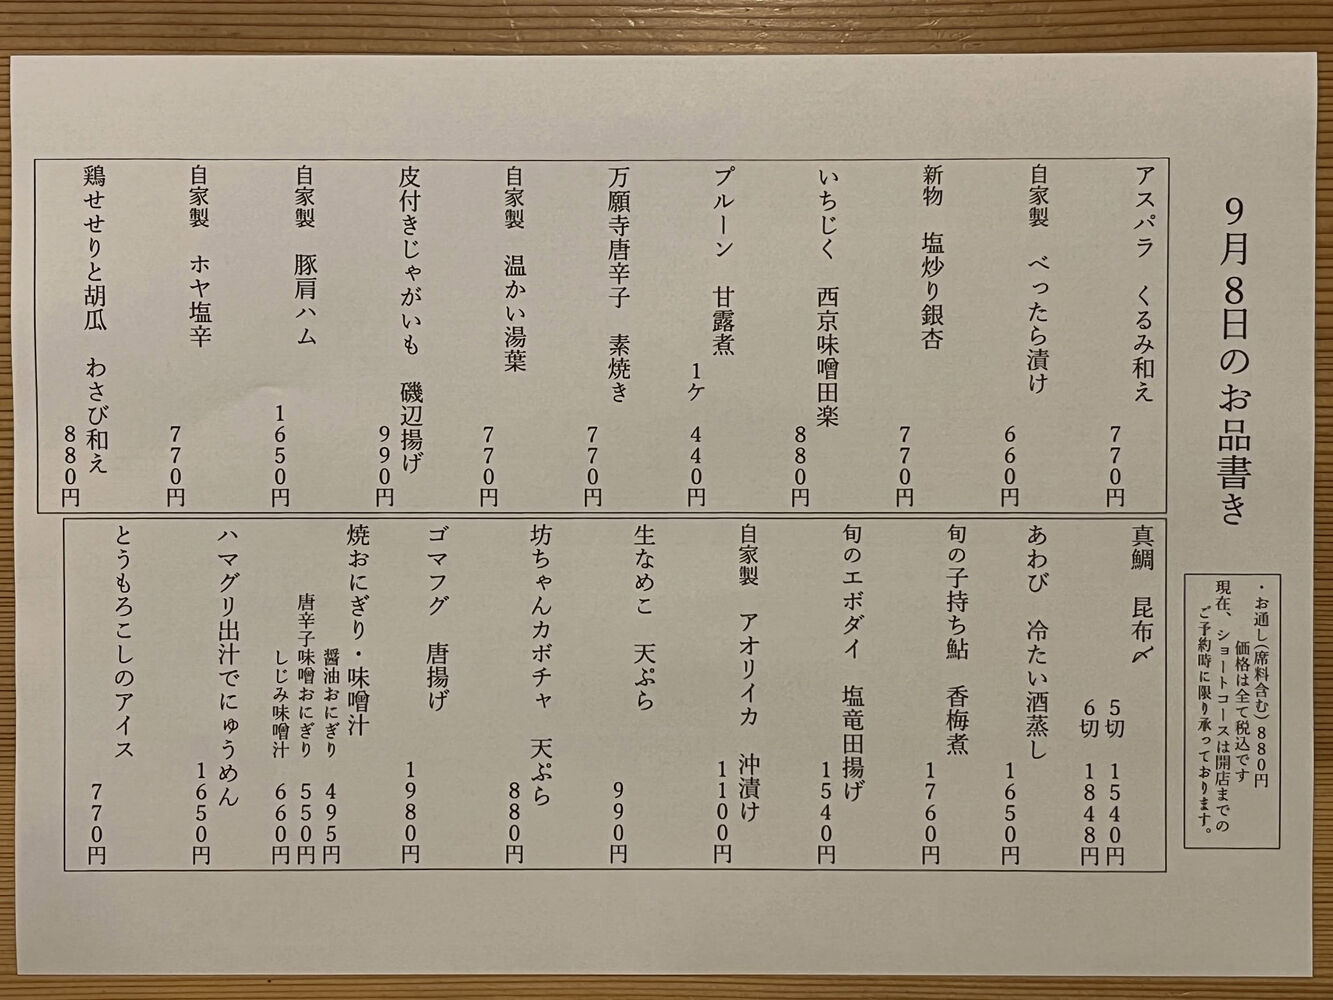 9月8日のお品書き
・お通し(席料含む)880円
価格は全て税込です
現在、ショートコースは開店までの
ご予約時に限り承っております。
アスパラ くるみ和え
770円
自家製 べったら漬け
660円
新物 塩炒り銀杏
770円
いちじく 西京味噌田楽
880円
プルーン 甘露煮
1ケ 440円
万願寺唐辛子 素焼き
770円
自家製 温かい湯葉
770円
皮付きじゃがいも 磯辺揚げ
990円
自家製 豚肩ハム
1650円
自家製 ホヤ塩辛
770円
鶏せせりと胡瓜 わさび和え
880円
真鯛 昆布〆
5切 1540円
6切 1848円
あわび 冷たい酒蒸し
1650円
旬の子持ち鮎 香梅煮
1760円
旬のエボダイ 塩竜田揚げ
1540円
自家製 アオリイカ 沖漬け
1100円
生なめこ 天ぷら
990円
坊ちゃんカボチャ 天ぷら
880円
ゴマフグ 唐揚げ
1980円
焼おにぎり・味噌汁
醤油おにぎり 495円
唐辛子味噌おにぎり 550円
しじみ味噌汁 660円
ハマグリ出汁でにゅうめん
1650円
とうもろこしのアイス
770円